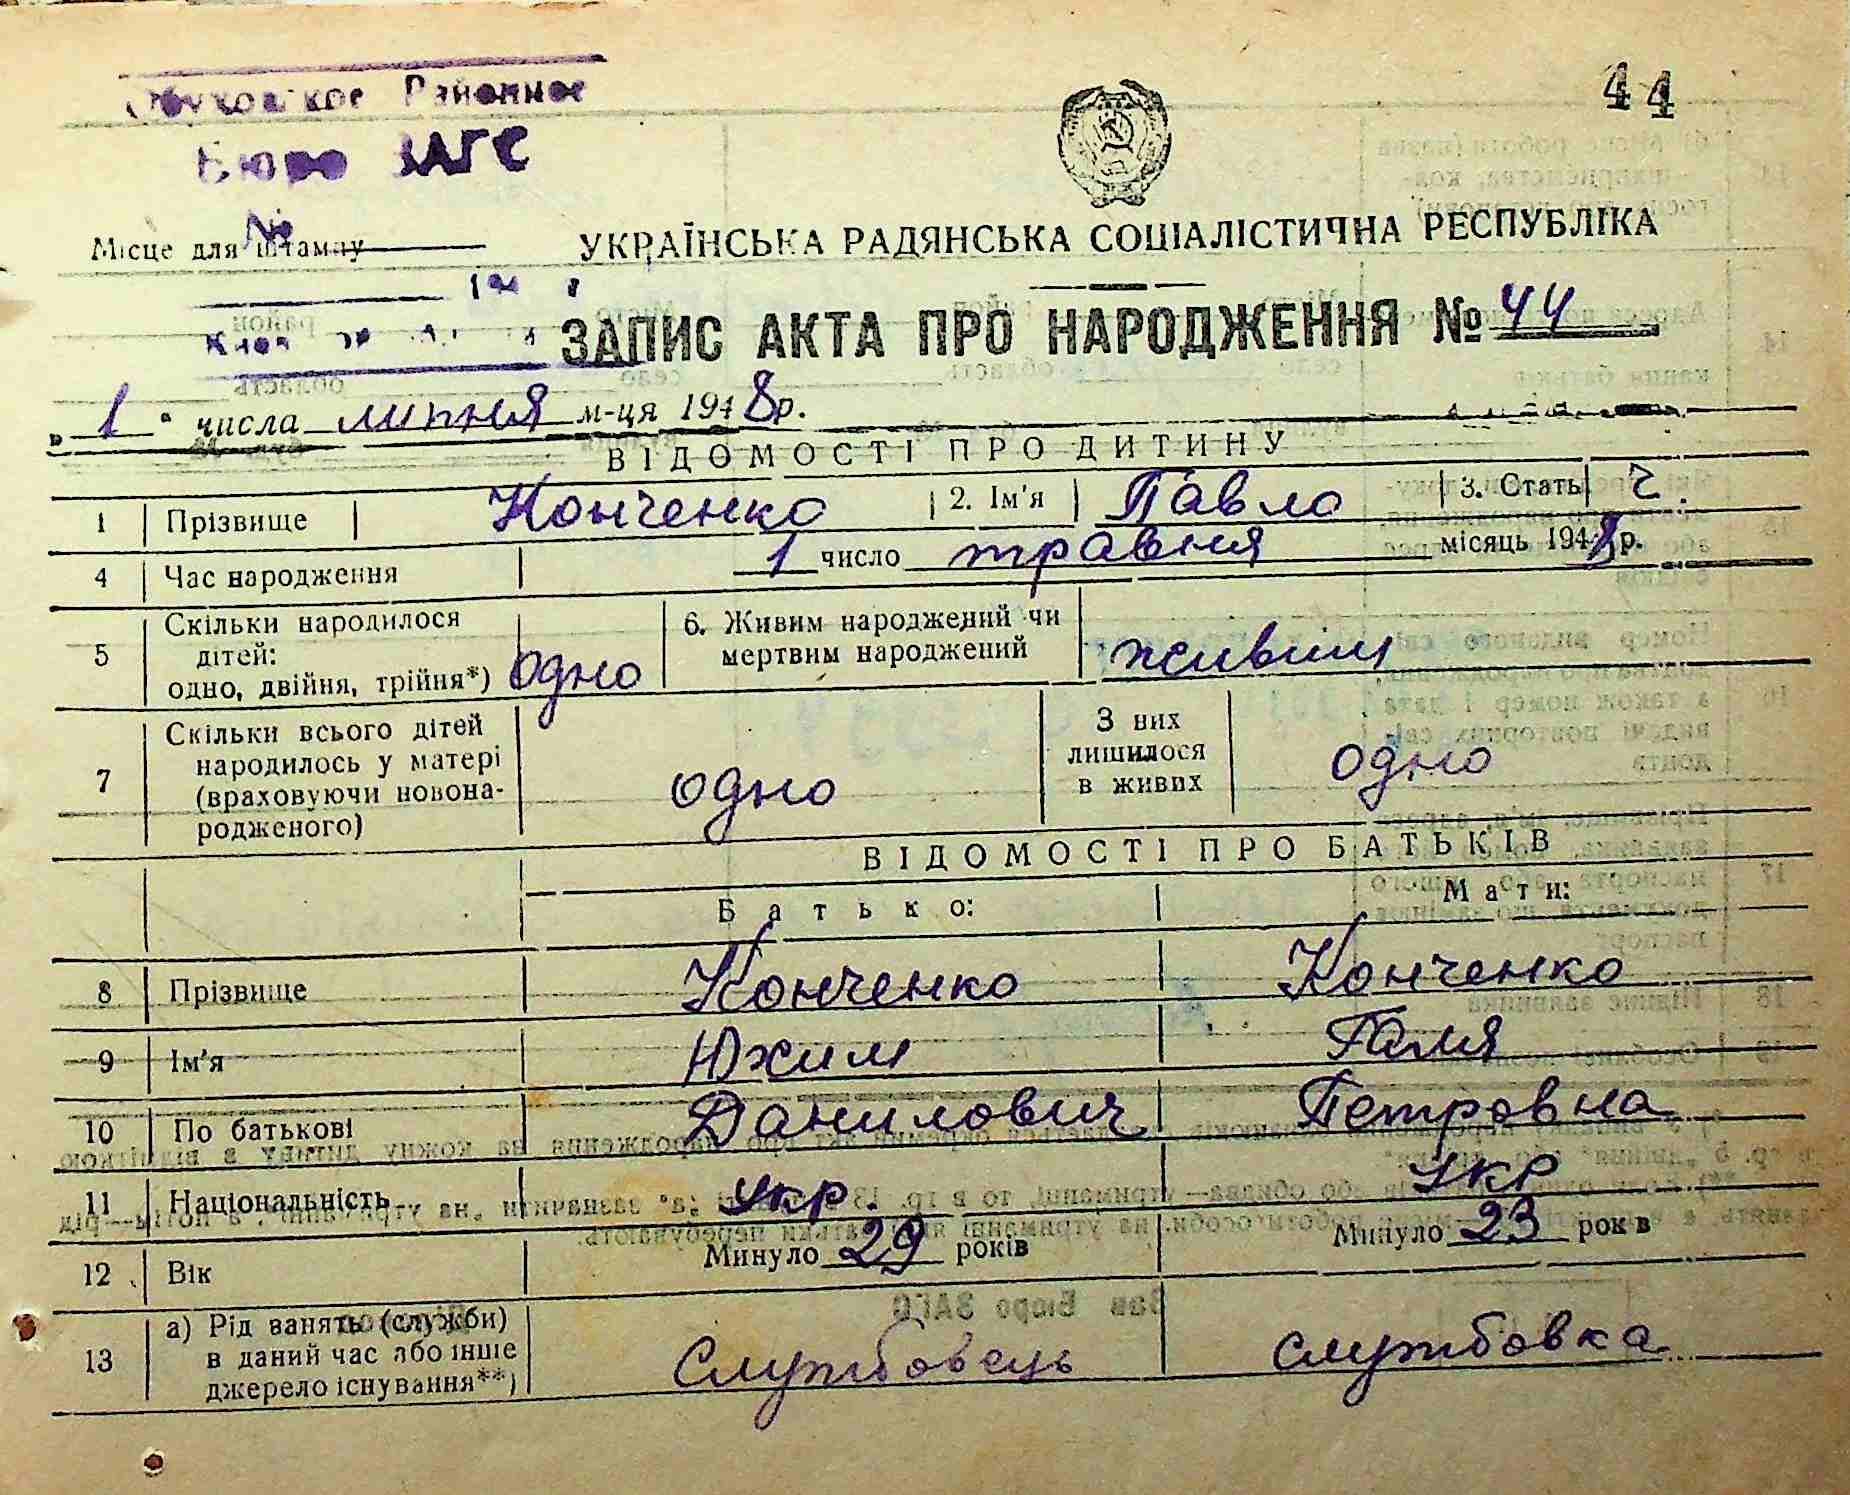 44
Обуховское Районное
Бюро ЗАГС
№
Місце для штампу
УКРАЇНСЬКА РАДЯНСЬКА СОЦІАЛІСТИЧНА РЕСПУБЛІКА
ЗАПИС АКТА ПРО НАРОДЖЕННЯ № 44
„ 1 “ числа липня м-ця 1948 р.
ВІДОМОСТІ ПРО ДИТИНУ
1 Прізвище Конченко 2. Ім'я Павло 3. Стать ч.
4 Час народження 1 число травня місяць 1948 р.
5 Скільки народилося дітей: одно, двійня, трійня*) одно 6. Живим народжений чи мертвим народжений живим
7 Скільки всього дітей народилось у матері (враховуючи новонародженого) одно З них лишилося в живих одно
ВІДОМОСТІ ПРО БАТЬКІВ
Батько: Мати:
8 Прізвище Конченко Конченко
9 Ім'я Юхим Галя
10 По батькові Данилович Петровна
11 Національність укр. укр
12 Вік Минуло 29 років Минуло 23 років
13 а) Рід занять (служби) в даний час або інше джерело існування**) Службовець службовка